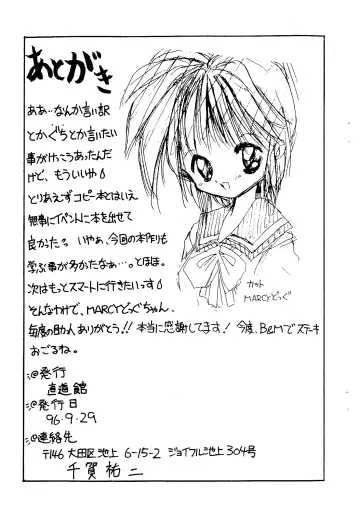 あとがき
ああ…なんか言い訳
とかぐちとか言いたい
事がけっこうあったんだ
けど、もういいや
とりあえずコピー本とはいえ
無事にイベントに本を出せて
良かった。いやぁ、今回の本作りも
学ぶ事が多かたなぁ…。とほほ。
次はもっとスマートに行きたいっす
そんなわけで、MARCYどっぐちゃん、
毎度の助人ありがとう!!本当に感謝してます!今度、B&Mでステーキ
おごるね。
カット
MARCYどっぐ
:@発行
直道館
:@発行日
96.9.29
:@連絡先
〒146 大田区池上 6-15-2 ジョイフル池上304号
千賀祐二